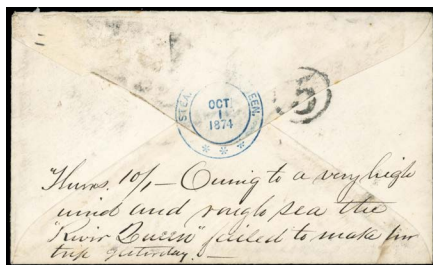 STEA. EEN.
OCT
1
1874
* * *
5
"Thurs. 10/1 — Owing to a very high
wind and rough sea the
"River Queen" failed to make her
trip yesterday. —